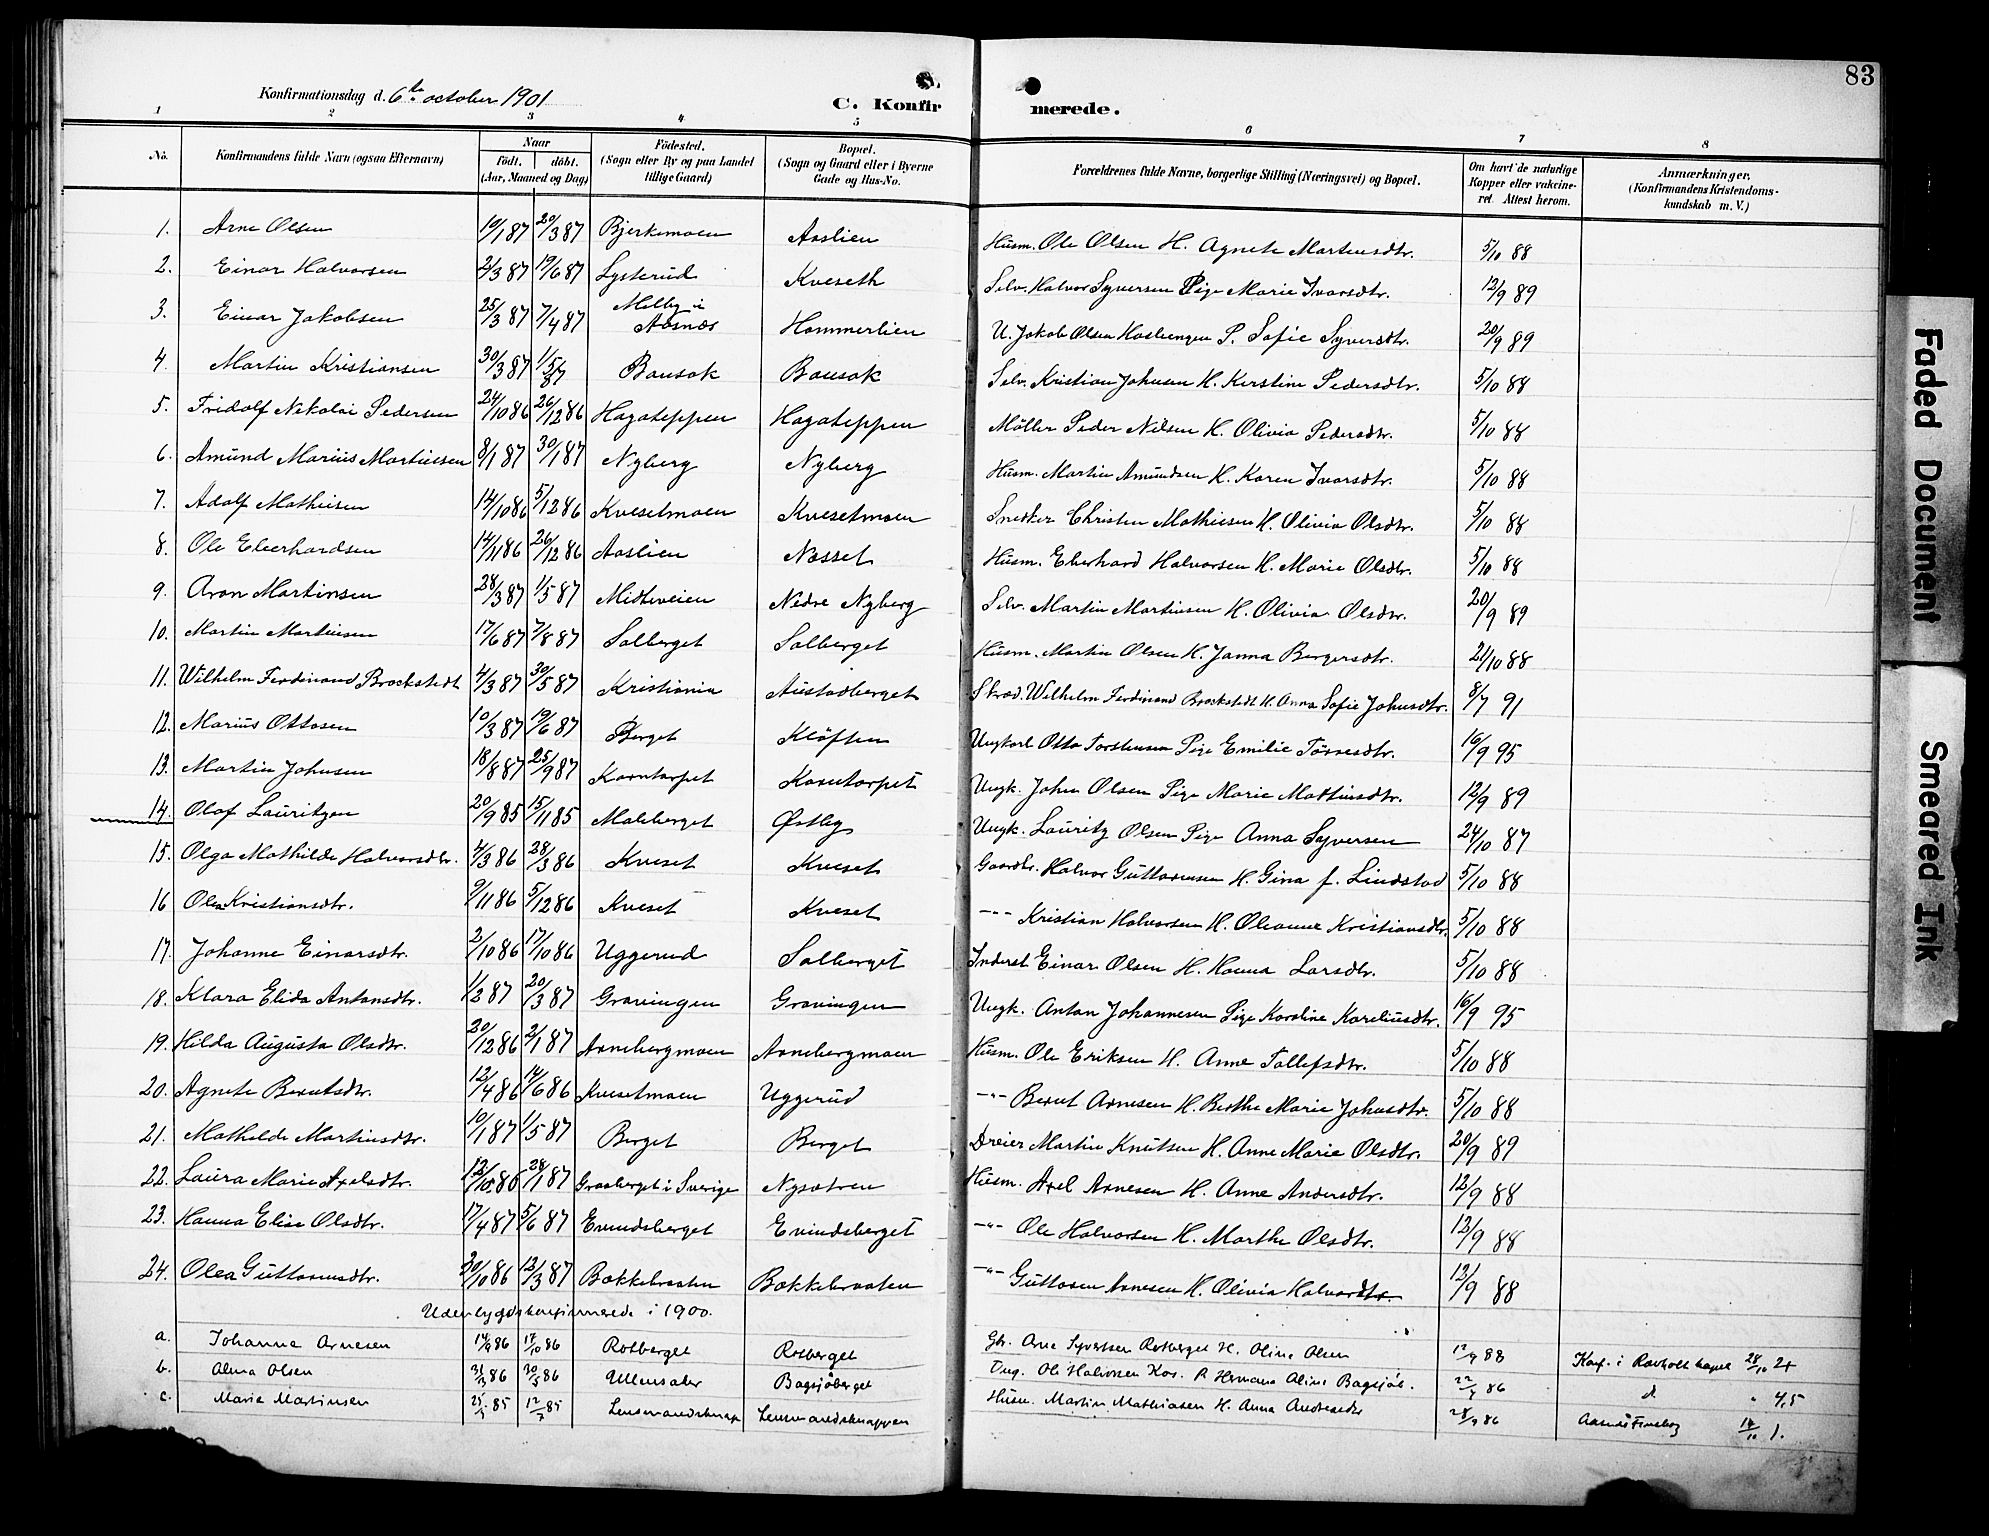 83
Konfirmationsdag d. 6te october 1901
C. Konfirmerede.
1 2 3 4 5 6 7 8
No. Konfirmandens fulde Navn (ogsaa Efternavn) Naar født. døbt. (Aar, Maaned og Dag) Fødested. (Sogn eller By og paa Landet tillige Gaard) Bopæl. (Sogn og Gaard eller i Byerne Gade og Hus-No. Forældrenes fulde Navne, borgerlige Stilling (Næringsvei) og Bopæl. Om havt de naturlige Kopper eller vakcineret. Attest herom. Anmærkninger. (Konfirmandens Kristendomskundskab m. V.)
1. Arne Olsen 19/1 87 20/3 87 Bjerkemoen Aaslien Husm. Ole Olsen H. Agnete Martinsdtr. 5/10 88
2. Einar Halvorsen 2/3 87 19/6 87 Lysterud Kveseth Selv. Halvor Syversen Pige Marie Ivarsdtr. 12/9 89
3. Einar Jakobsen 25/3 87 7/4 87 Melby i Aasnæs Hammerlien U. Jakob Olsen P. Sofie Syversdtr. 20/9 89
4. Martin Kristiansen 30/3 87 1/5 87 Bausak Bausak Selv. Kristian Johnsen H. Kerstine Pedersdtr. 5/10 88
5. Fridolf Nikolai Pedersen 24/10 86 26/12 86 Hagateppen Hagateppen Møller Peder Nilsen H. Olivia Pedersdtr. 5/10 88
6. Amund Marius Martinsen 8/1 87 30/1 87 Nyberg Nyberg Husm. Martin Amundsen H. Karen Ivarsdtr. 5/10 88
7. Adolf Mathisen 14/10 86 5/12 86 Kvesetmoen Kvesetmoen Snedker Christen Mathiesen H. Olivia Olsdtr. 5/10 88
8. Ole Eberhardsen 14/11 86 26/12 86 Aaslien Næsset Husm. Eberhard Halvorsen H. Marie Olsdtr. 5/10 88
9. Aron Martinsen 28/3 87 1/5 87 Midtveien Nedre Nyberg Selv. Martin Martinsen H. Olivia Olsdtr. 20/9 89
10. Martin Martinsen 17/6 87 7/8 87 Solberget Solberget Husm. Martin Olsen H. Janna Bergersdtr. 21/10 88
11. Wilhelm Ferdinand Brockstedt 4/3 87 30/5 87 Kristiania Austadberget Skræd. Wilhelm Ferdinand Brockstedt H. Anna Sofie Johnsdtr. 8/7 91
12. Marius Ottosen 10/3 87 19/6 87 Berget Kløften Ungkarl Otto Torstensen Pige Emilie Tørresdtr. 16/9 95
13. Martin Johnsen 18/8 87 25/9 87 Korntorpet Korntorpet Ungk. John Olsen Pige Marie Mattiusdtr. 12/9 89
14. Olaf Lauritzen 20/9 85 15/11 85 Maleberget Østby Ungk. Lauritz Olsen Pige Anna Syversen 24/10 87
15. Olga Mathilde Halvorsdtr. 4/3 86 28/3 86 Kveset Kveset Gaardbr. Halvor Guttormsen H. Gina f. Lindstad 5/10 88
16 Olea Kristiansdtr. 9/11 86 5/12 86 Kveset Kveset -"- Kristian Halvorsen H. Oleanne Kristiansdtr. 5/10 88
17. Johanne Einarsdtr. 2/10 86 17/10 86 Uggerud Solberget Inderst Einar Olsen H. Hanna Larsdtr. 5/10 88
18. Klara Elida Antonsdtr. 1/2 87 20/3 87 Gravingen Gravingen Ungk. Anton Johannesen Pige Karoline Kareliusdtr. 16/9 95
19. Hilda Augusta Olsdtr. 20/12 86 2/1 87 Arnebergmoen Arnebergmoen Husm. Ole Eriksen H. Anne Tollefsdtr. 5/10 88
20. Agnete Berntsdtr. 12/4 86 14/6 86 Kvesetmoen Uggerud -"- Bernt Arnesen H. Berthe Marie Johnsdtr. 5/10 88
21. Mathilde Martinsdtr. 10/1 87 1/5 87 Berget Berget Dreier Martin Knutsen H. Anne Marie Olsdtr. 20/9 89
22. Laura Marie Axelsdtr. 12/10 86 28/1 87 Graaberget i Sverige Nysætren Husm. Axel Arnesen H. Anne Andersdtr. 12/9 88
23. Hanna Elise Olsdtr. 17/4 87 5/6 87 Evindsberget Evindsberget -"- Ole Halvorsen H. Marthe Olsdtr. 12/9 88
24. Olea Guttormsdtr. 20/10 86 12/3 87 Bakkebraaten Bakkebraaten -"- Guttorm Arnesen H. Olivia Halvorsdtr. 12/9 88
Udenbygdskonfirmerede i 1900.
a. Johanne Arnesen 14/9 86 17/10 86 Rotberget Rotberget Gbr. Arne Syversen Rotberget H. Oline Olsen 12/9 88 Konf. i Ravholt kapel 28/10 2+
b. Alma Olsen 31/3 86 20/5 86 Ullensaker Bagsjøberget Ung. Ole Halvorsen P. Hermana Oline Bagsjøb. 22/9 86 d. " 4,5
c. Marie Martinsen 25/5 85 12/7 85 Lensmandsknap Lensmandsknappen Husm. Martin Mathiasen H. Anna Andersdtr 28/9 86 Aasnæs Finskog 14/10 1.
Faded Document
Smeared Ink